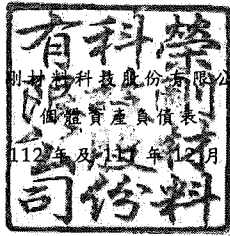 榮剛材料
科技股份
有限公司
剛材料科技股份有限公
個體資產負債表
112 年及 111 年 12 月